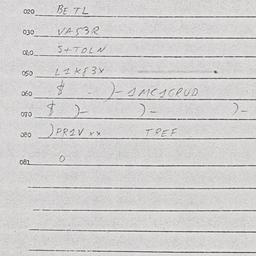 020 BETL
030 VAS3R
040 S+TOLN
050 L1KE3X
060 $ . )- 1MC1CRUD
070 $ )- )- )-
080 )PR1V xx TREF
081 0